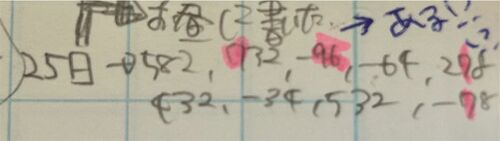 お母に書いた → ある
25日→582, 732, -96, -64, 298
432, -34, 532, -98